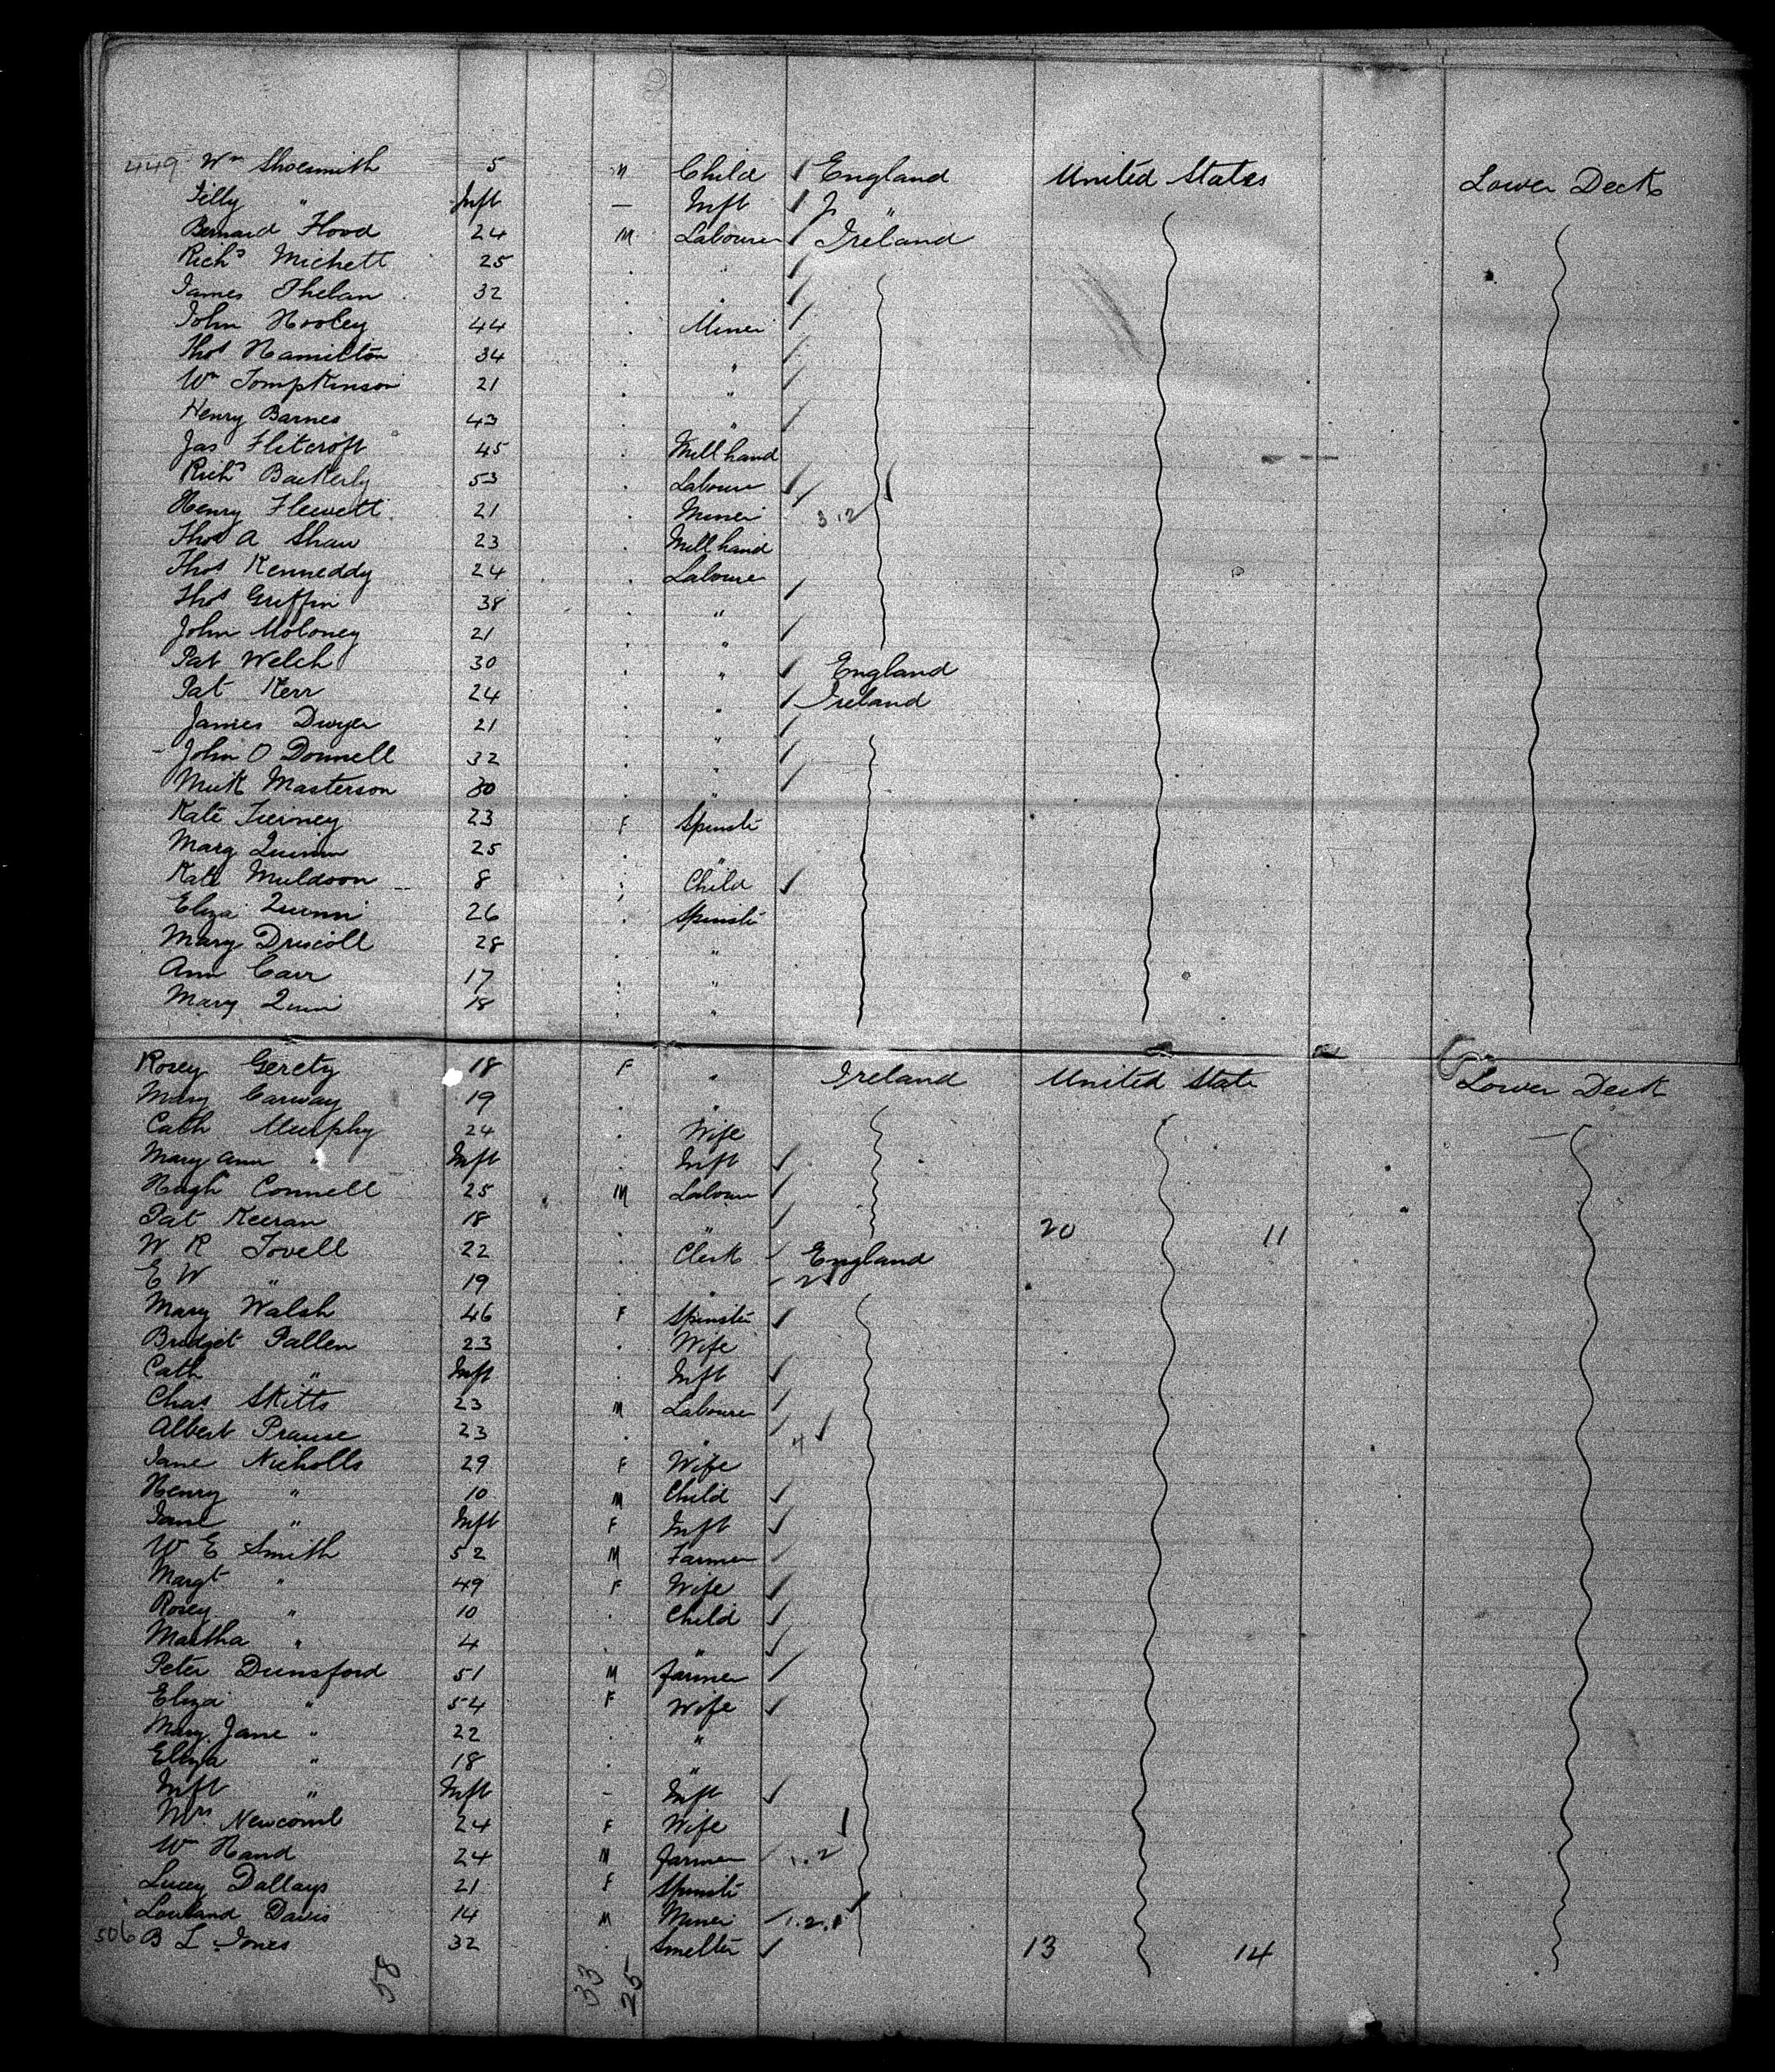 449 Wm Shoesmith 5 M Child England United States Lower Deck
Tilly " Inft — Inft "
Bernard Flood 24 M Labourer Ireland
Richd Michell 25 . "
James Phelan 32 . "
John Hooley 44 . Miner
Thos Hamilton 34 . "
Wm Tompkinson 21 . "
Henry Barnes 43 . "
Jas Flitcroft 45 . Mill hand
Richd Backerly 53 . Laboure
Henry Flewett 21 . Miner 3.12
Thos A Shaw 23 . Mill hand
Thos Kenneddy 24 . Laboure
Thos Griffin 38 . "
John Moloney 21 . "
Pat Welch 30 . " England
Pat Kerr 24 . " Ireland
James Dwyer 21 . "
John O Donnell 32 . "
Mick Masterson 30 . "
Kate Tierney 23 F Spinstr
Marg Quinn 25 . "
Kate Muldoon 8 . Child
Eliza Quinn 26 . Spinstr
Mary Driscoll 28 . "
Ann Carr 17 . "
Mary Quin 18 . "
Rosey Gerety 18 F " Ireland United State Lower Deck
Mary Carway 19 . "
Cath Murphy 24 . Wife
Mary Ann " Inft . Inft
Hugh Connell 25 M Labour
Pat Keeran 18 . " 20 11
W R Tovell 22 . Clerk England
E W " 19 . "
Mary Walsh 46 F Spinster
Bridget Fallen 23 . Wife
Cath " Inft . Inft
Chas Skitts 23 M Laboure
Albert Prause 23 . " 4
Jane Nicholls 29 F Wife
Henry " 10 M Child
Jane " Inft F Inft
W E Smith 52 M Farmer
Margt " 49 F Wife
Rosey " 10 . Child
Martha " 4 . "
Peter Dunsford 51 M Farmer
Eliza " 54 F Wife
Mary Jane " 22 . "
Eliza " 18 . "
Inft " Inft — Inft
Mrs Newcomb 24 F Wife
Wm Hand 24 M Farmer 1.2
Lucy Dallays 21 F Spinstr
Louland Davis 14 M Miner 1.2.1
506 B L Jones 32 . Smelter 13 14
58 33 25